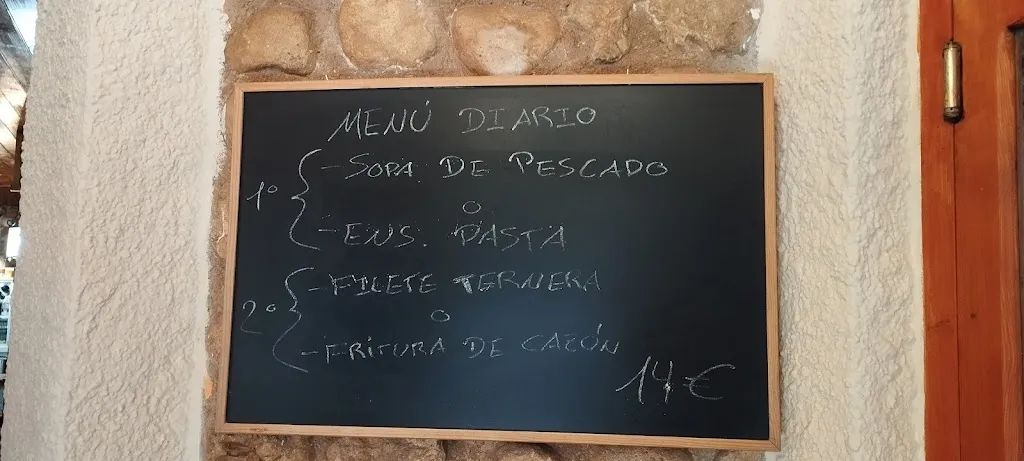 MENÚ DIARIO
1º - SOPA DE PESCADO
o
- ENS. PASTA
2º - FILETE TERNERA
o
- FRITURA DE CAZÓN
14€